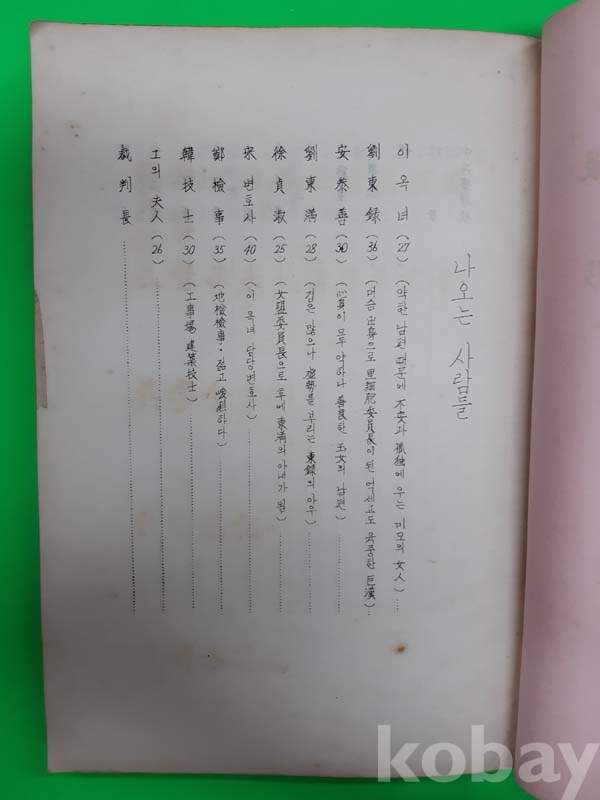 나오는 사람들
이옥녀 (27) (약한 남편 때문에 不安과 孤独에 우는 미모의 女人) ....
劉東録 (36) (머슴出身으로 里細胞委員長이 된 억세고도 육중한 巨漢) ...
安泰善 (30) (心身이 모두 약하나 善良한 玉女의 남편) ..........
劉東満 (28) (겁은 많으나 虚勢를 부리는 東録의 아우) ..........
徐貞淑 (25) (女盟委員長으로 후에 東満의 아내가 됨) ..........
宋변호사 (40) (이옥녀 담당변호사) ....................
鄭検事 (35) (地檢檢事·젊고 峻烈하다) ....................
韓技士 (30) (工事場 建築技士) ....................
그의 夫人 (26) ....................
裁判長 ....................
kobay